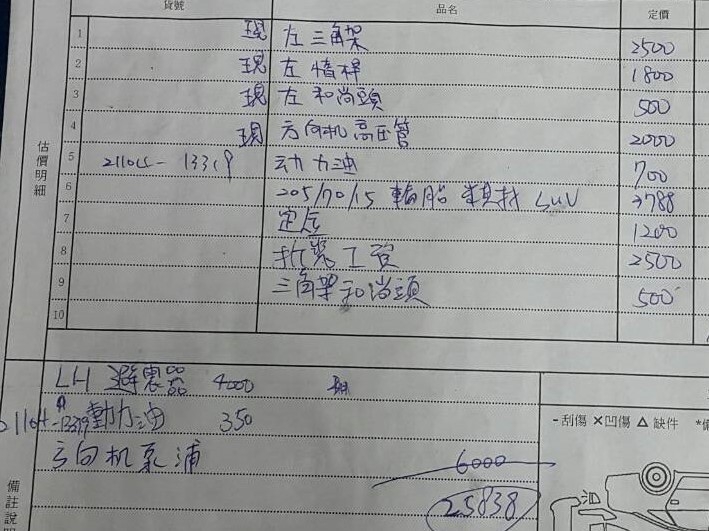 貨號 品名 定價
估價明細
1 現 左三角架 2500
2 現 左 惰桿 1800
3 現 左 和尚頭 500
4 現 方向机高压管 2000
5 动力油 700
6 205/70/15 輪胎 SUV 3788
7 定位 1200
8 拆裝工資 2500
9 三角架和尚頭 500
10
LH 避震器 4000
動力油 350
方向机泵浦 6000
25838
備註說明
-刮傷 ×凹傷 △缺件 *
油